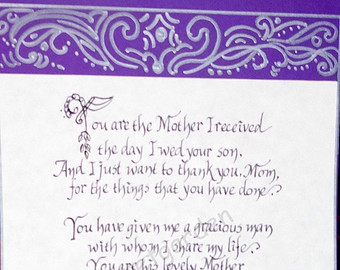 You are the Mother I received
the day I wed your son.
And I just want to thank you, Mom,
for the things that you have done.
You have given me a gracious man
with whom I share my life.
You are his lovely Mother